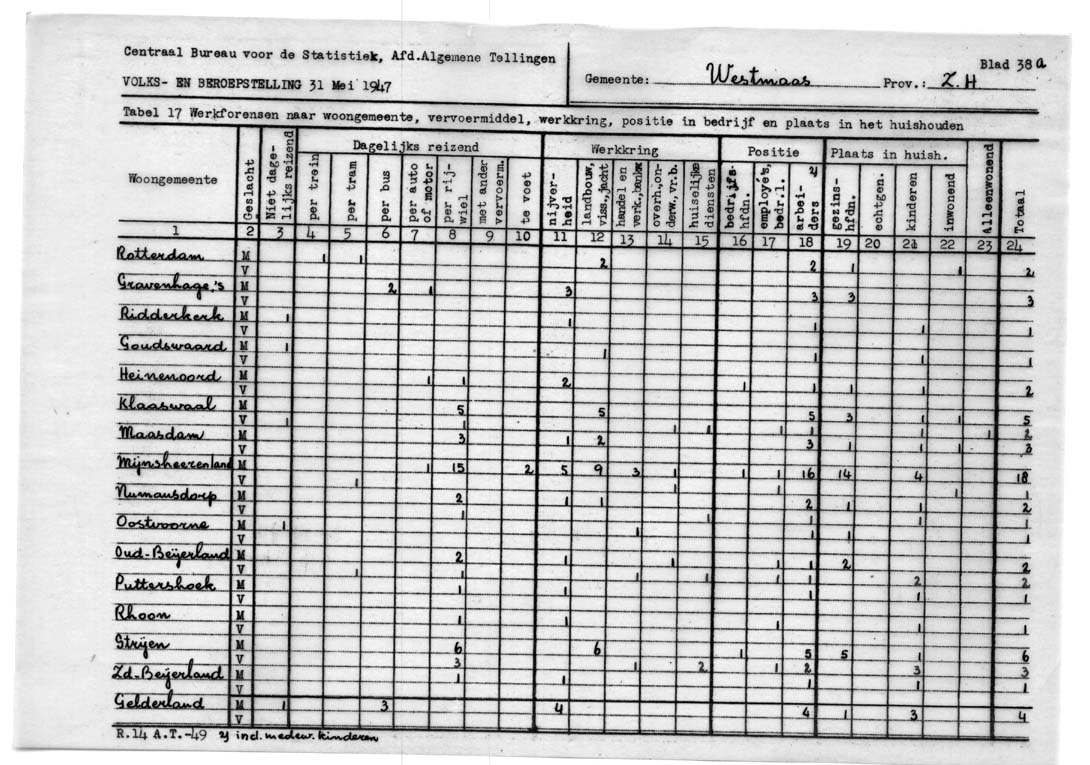 Centraal Bureau voor de Statistiek, Afd.Algemene Tellingen
VOLKS- EN BEROEPSTELLING 31 Mei 1947
Gemeente: Westmaas Prov.: Z.H
Blad 38a
Tabel 17 Werkforensen naar woongemeente, vervoermiddel, werkkring, positie in bedrijf en plaats in het huishouden
Woongemeente | Geslacht | Niet dage-lijks reizend | Dagelijks reizend: per trein | per tram | per bus | per auto of motor | per rij-wiel | met ander vervoerm. | te voet | Werkkring: nijver-heid | landbouw, viss., jacht | handel en verk., bankw | overh., on-derw, vr.b. | huiselijke diensten | Positie: bedrijfs-hfdn. | employé's, bedr.l. | arbei-ders 2) | Plaats in huish.: gezins-hfdn. | echtgen. | kinderen | inwonend | Alleenwonend | Totaal
1 2 3 4 5 6 7 8 9 10 11 12 13 14 15 16 17 18 19 20 21 22 23 24
Rotterdam M 1 1 2 2 1 1 2
V
Gravenhage,'s M 2 1 3 3 3 3
V
Ridderkerk M 1 1 1 1 1
V
Goudswaard M 1 1 1 1 1
V
Heinenoord M 1 1 2 1 1 1 1 2
V
Klaaswaal M 5 5 5 3 1 1 5
V 1 1 1 1 1 1 1 1 2
Maasdam M 3 1 2 3 1 1 1 3
V
Mijnsheerenland M 1 15 2 5 9 3 1 1 1 16 14 4 18
V 1 1 1 1 1
Numansdorp M 2 1 1 2 1 1 2
V 1 1 1 1 1
Oostvoorne M 1 1 1 1 1
V
Oud-Beijerland M 2 1 1 1 1 2 2
V 1 1 1 1 1 1 2 2
Puttershoek M 1 1 1 1 1
V
Rhoon M 1 1 1 1 1
V
Strijen M 6 6 1 5 5 1 6
V 3 1 2 1 2 3 3
Zd-Beijerland M 1 1 1 1 1
V
Gelderland M 1 3 4 4 1 3 4
V
R.14 A.T.-49 2) incl. medew. kinderen